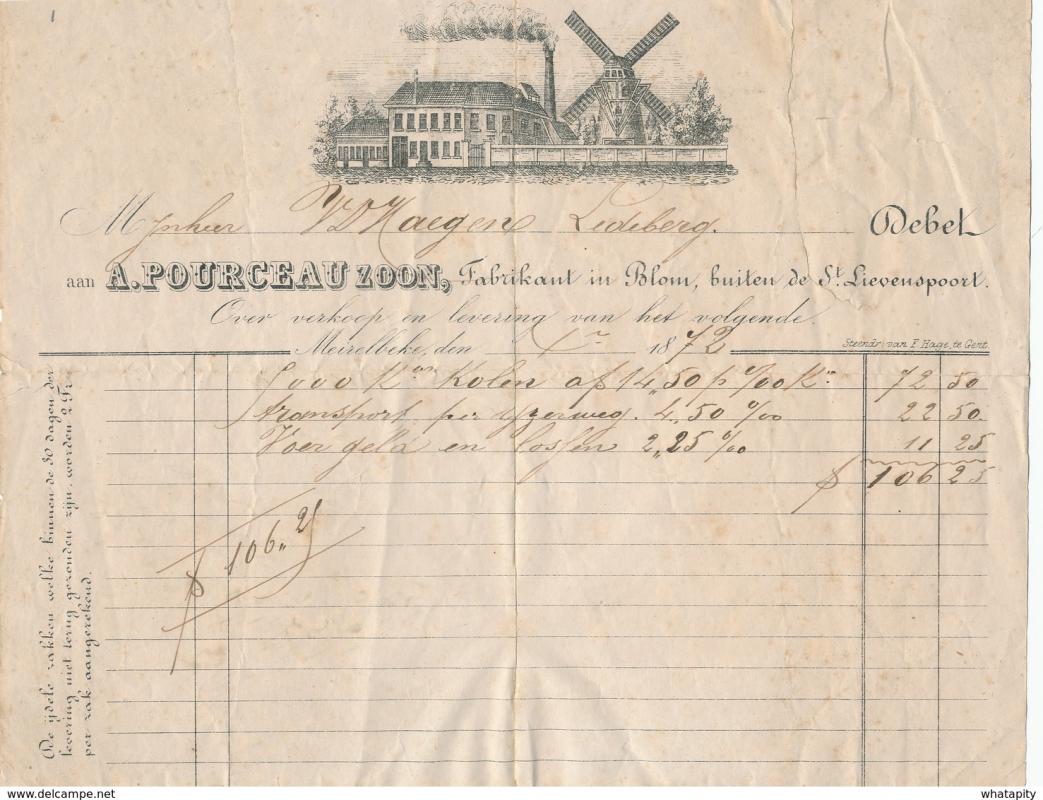 1
Mijnheer VDHaegen Ledeberg. Debet
aan A. POURCEAU ZOON, Fabrikant in Blom, buiten de St. Lievenspoort.
Over verkoop en levering van het volgende.
Meirelbeke, den 1872
Steendr. van F. Hage, te Gent.
5000 Kos Kolen af 14,50 p %00 Ko 72 50
transport per yzerweg. 4,,50 %00 22 50
Voer geld en lossen 2,,25 %00 11 25
f 106 25
f 106,,25
De ijdele zakken welke binnen de 30 dagen der
levering niet terug gezonden zijn, worden 2 Fr.
per zak aangerekend.
www.delcampe.net
whatapity